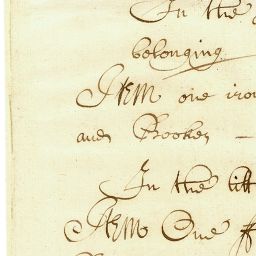 In the
belonging
Item one iron
and Bookes —
In the litt
Item One